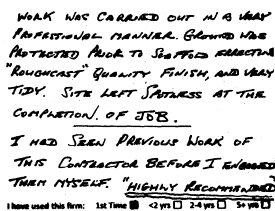 WORK WAS CARRIED OUT IN A VERY
PROFESSIONAL MANNER. GROUND WAS
PROTECTED PRIOR TO SCAFFOLD ERECTION
"ROUGHCAST" QUALITY FINISH, AND VERY
TIDY. SITE LEFT SPOTLESS AT THE
COMPLETION OF JOB.
I HAD SEEN PREVIOUS WORK OF
THIS CONTRACTOR BEFORE I ENGAGED
THEM MYSELF. "HIGHLY RECOMMENDED"
I have used this firm: 1st Time <2 yrs 2-4 yrs 5+ yrs